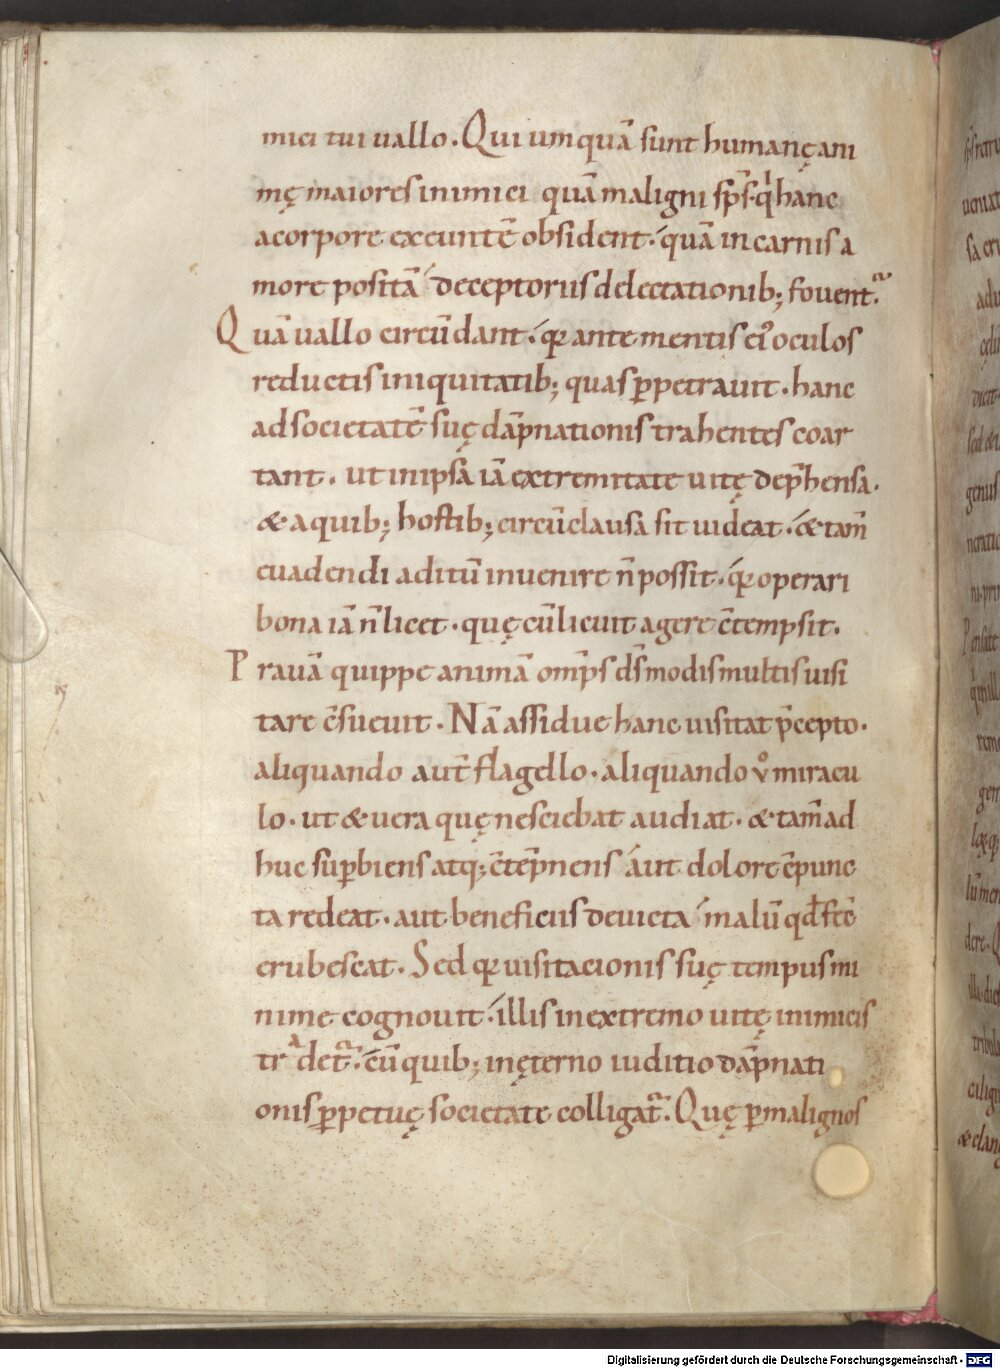 mici tui uallo. Qui umquā sunt humanę ani
mę maiores inimici quā maligni sp̄s. qͥ hanc
a corpore exeuntē obsident. quā in carnis a
more positā deceptoriis delectationib; fouent᷒.
Quā uallo circūdant. q̄ ante mentis ei᷒ oculos
reductis iniquitatib; quas ꝑpetrauit. hanc
ad societatē suę dāpnationis trahentes coar
tant. ut in ipsā iā extremitate uitę dep̄hensa.
& a quib; hostib; circūclausa sit uideat. & tam̄
euadendi aditū inuenire n̄ possit. q̄ operari
bona iā n̄ licet. quę cū licuit agere c̄tempsit.
Prauā quippe animā om̄ps d̄s modis multis uisi
tare c̄sueuit. Nā assidue hanc uisitat p̄cepto.
aliquando aut̄ flagello. aliquando v̊ miracu
lo. ut & uera quę nesciebat audiat. & tam̄ ad
huc suꝑbiens atq; c̄tēpnens aut dolore c̄punc
ta redeat. aut beneficiis deuicta malū qd̄ fec̄
erubescat. Sed q̄ uisitacionis suę tempus mi
nime cognouit. illis in extremo uitę inimicis
trͣdet᷒. cū quib; in ęterno iuditio dāpnati
onis ꝑpetuę societate colligat᷒. Quę ꝑ malignos
Digitalisierung gefördert durch die Deutsche Forschungsgemeinschaft - DFG